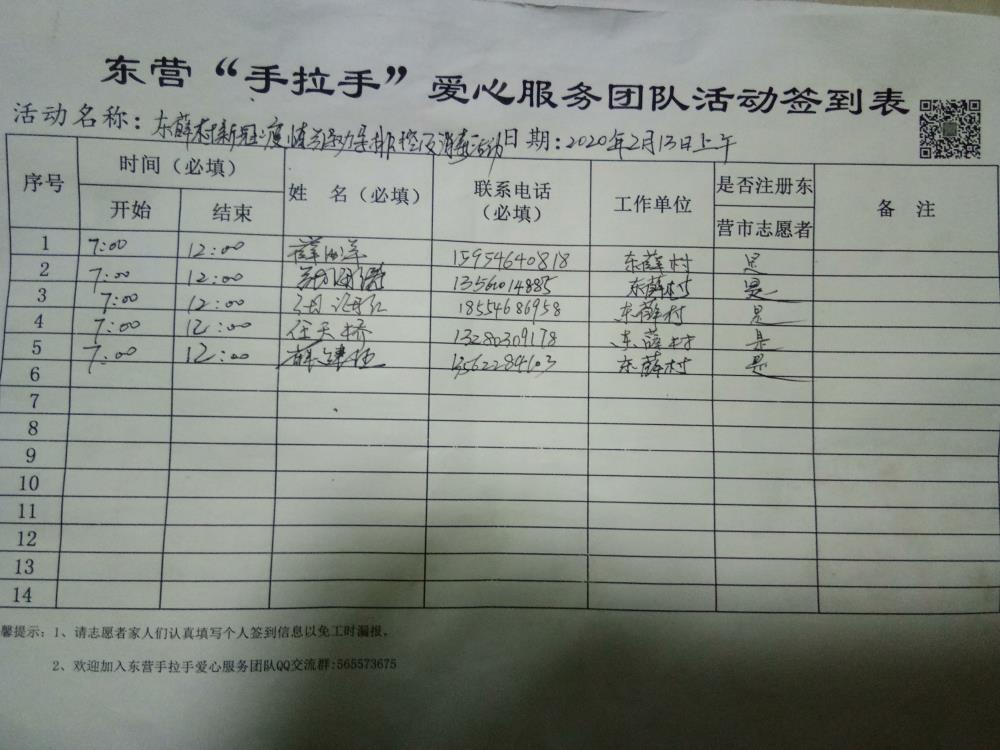 东营“手拉手”爱心服务团队活动签到表
活动名称：东薛村新冠疫情 排控及消毒活动 日期：2020年2月13日上午
序号 时间（必填） 姓 名（必填） 联系电话（必填） 工作单位 是否注册东营市志愿者 备 注
开始 结束
1 7:00 12:00 15954640818 东薛村 是
2 7:00 12:00 13561014885 东薛村 是
3 7:00 12:00 18554686958 东薛村 是
4 7:00 12:00 任天桥 13280309178 东薛村 是
5 7:00 12:00 13562284103 东薛村 是
6
7
8
9
10
11
12
13
14
馨提示：1、请志愿者家人们认真填写个人签到信息以免工时漏报。
2、欢迎加入东营手拉手爱心服务团队QQ交流群:565573675